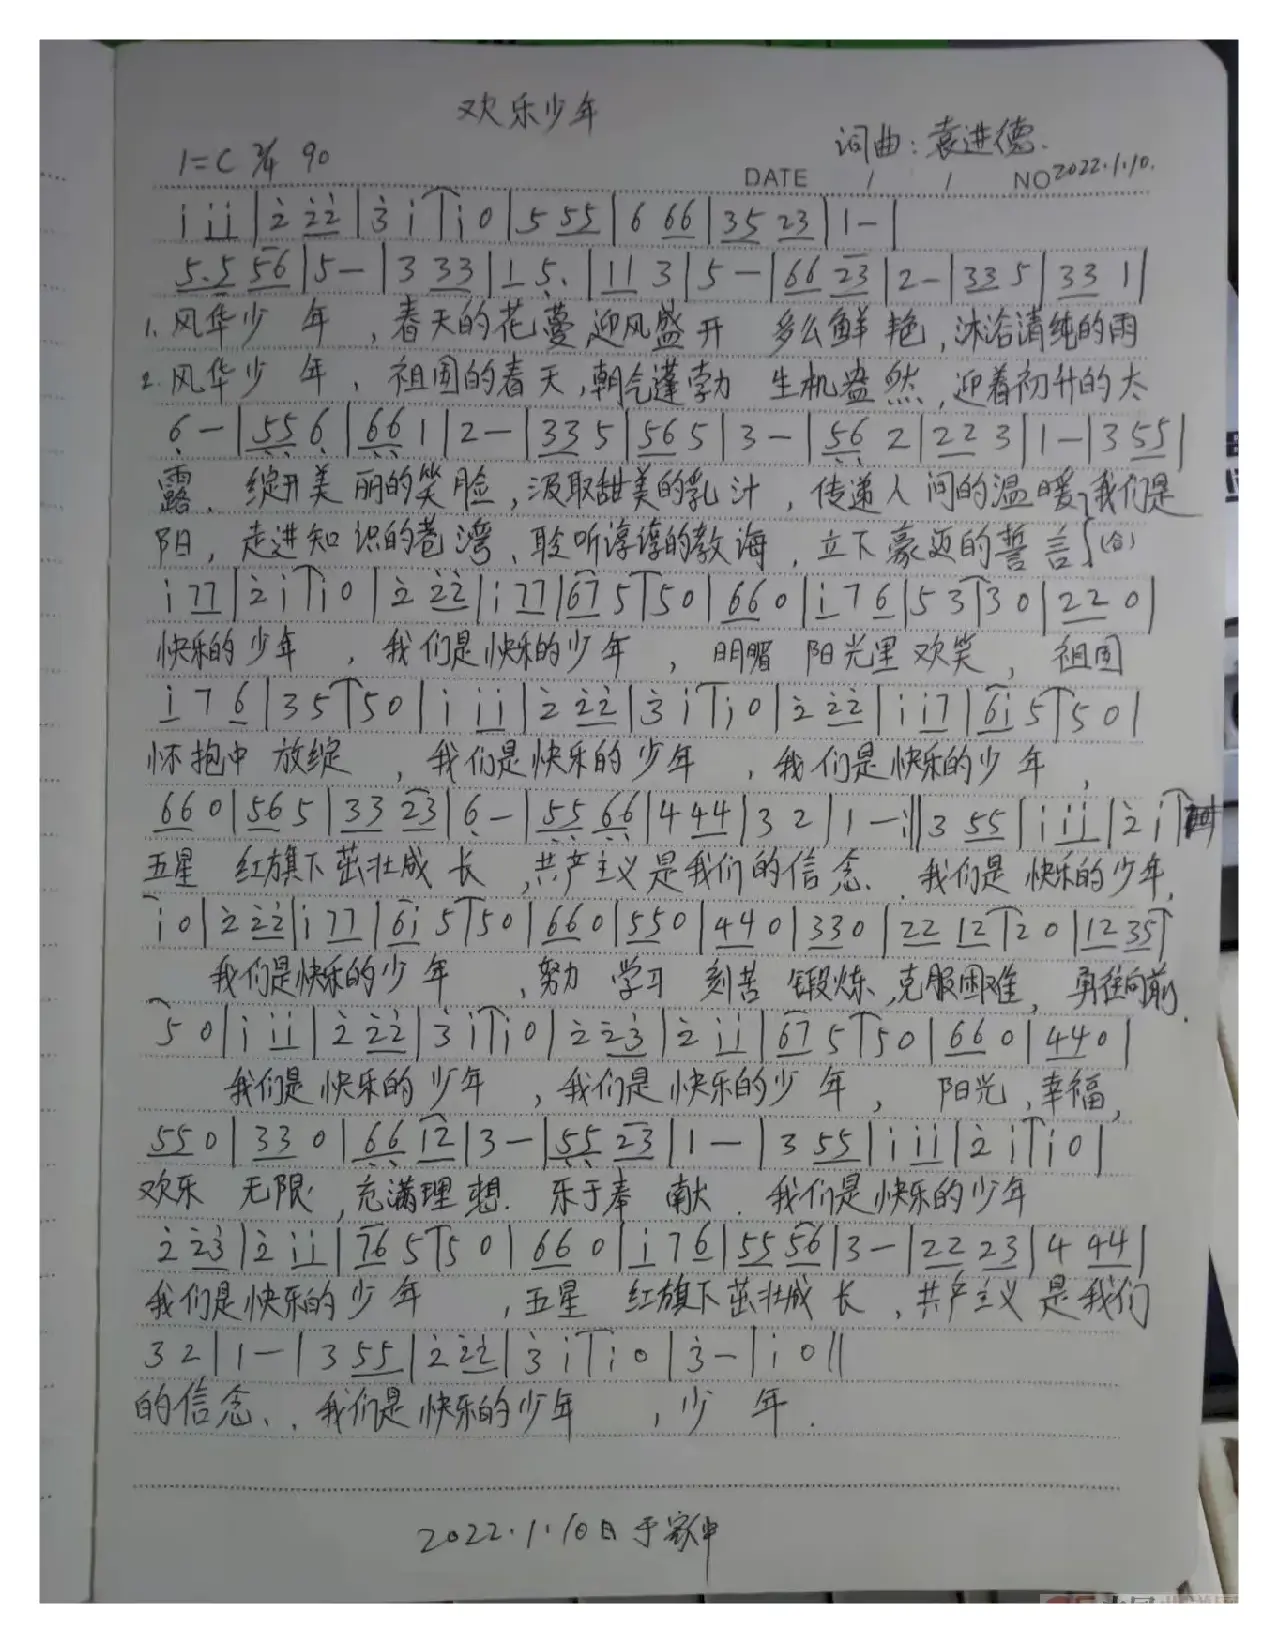 欢乐少年
词曲：袁进德.
1=C 2/4 90
DATE / / NO 2022.1.10.
i i i | 2̇ 2̇2̇ | 3̇ i | i 0 | 5 55 | 6 66 | 35 23 | 1 - |
5.5 56 | 5 - | 3 33 | 1 5. | 11 3 | 5 - | 66 23 | 2 - | 33 5 | 33 1 |
1. 风华少 年 ，春天的花蔓迎风盛开 多么鲜 艳，沐浴清纯的雨
2. 风华少 年 ，祖国的春天，朝气蓬勃 生机盎然，迎着初升的太
6̣ - | 5̣5̣ 6̣ | 6̣6̣ 1 | 2 - | 33 5 | 56 5 | 3 - | 5̣6̣ 2 | 22 3 | 1 - | 3 55 |
露. 绽开美 丽的笑 脸，汲取甜美的乳 汁，传递人 间的温 暖，我们是
阳，走进知 识的巷 湾、聆听谆谆的教 诲，立下豪迈的誓 言 (合)
i 77 | 2̇ i | i 0 | 2̇ 2̇2̇ | i 77 | 67 5 | 5 0 | 66 0 | i 7 6 | 5 3 | 3 0 | 22 0 |
快乐的少年 ，我们是快乐的少年 ，明媚 阳光里 欢笑， 祖国
i 7 6 | 3 5 | 5 0 | i i i | 2̇ 2̇2̇ | 3̇ i | i 0 | 2̇ 2̇2̇ | i i7 | 6i 5 | 5 0 |
怀抱中 放绽 ，我们是快乐的 少年 ，我们是快乐的少 年 ，
66 0 | 56 5 | 33 23 | 6̣ - | 5̣5̣ 6̣6̣ | 4 44 | 3 2 | 1 - :|| 3 55 | i i i | 2̇ i |
五星 红旗下 茁壮成 长 ，共产主义是我们的信念. 我们是 快乐的少年，
i 0 | 2̇ 2̇2̇ | i 77 | 6i 5 | 5 0 | 66 0 | 55 0 | 44 0 | 33 0 | 22 12 | 2 0 | 12 35 |
我们是快乐的少 年 ，努力 学习 刻苦 锻炼，克服困难，勇往向前.
5 0 | i i i | 2̇ 2̇2̇ | 3̇ i | i 0 | 2̇ 2̇3̇ | 2̇ i i | 67 5 | 5 0 | 66 0 | 44 0 |
我们是 快乐的 少年 ，我们是 快乐的少 年 ， 阳光，幸福，
55 0 | 33 0 | 6̣6̣ 12 | 3 - | 5̣5̣ 23 | 1 - | 3 55 | i i i | 2̇ i | i 0 |
欢乐 无限，充满理 想. 乐于奉 献. 我们是快乐的少年
2̇ 2̇3̇ | 2̇ i i | 76 5 | 5 0 | 66 0 | i 7 6 | 55 56 | 3 - | 22 23 | 4 44 |
我们是快乐的少 年 ，五星 红旗下茁壮成 长，共产主义 是我们
3 2 | 1 - | 3 55 | 2̇ 2̇2̇ | 3̇ i | i 0 | 3̇ - | i 0 ||
的信念、. 我们是快乐的少年 ，少 年.
2022.1.10日于家中